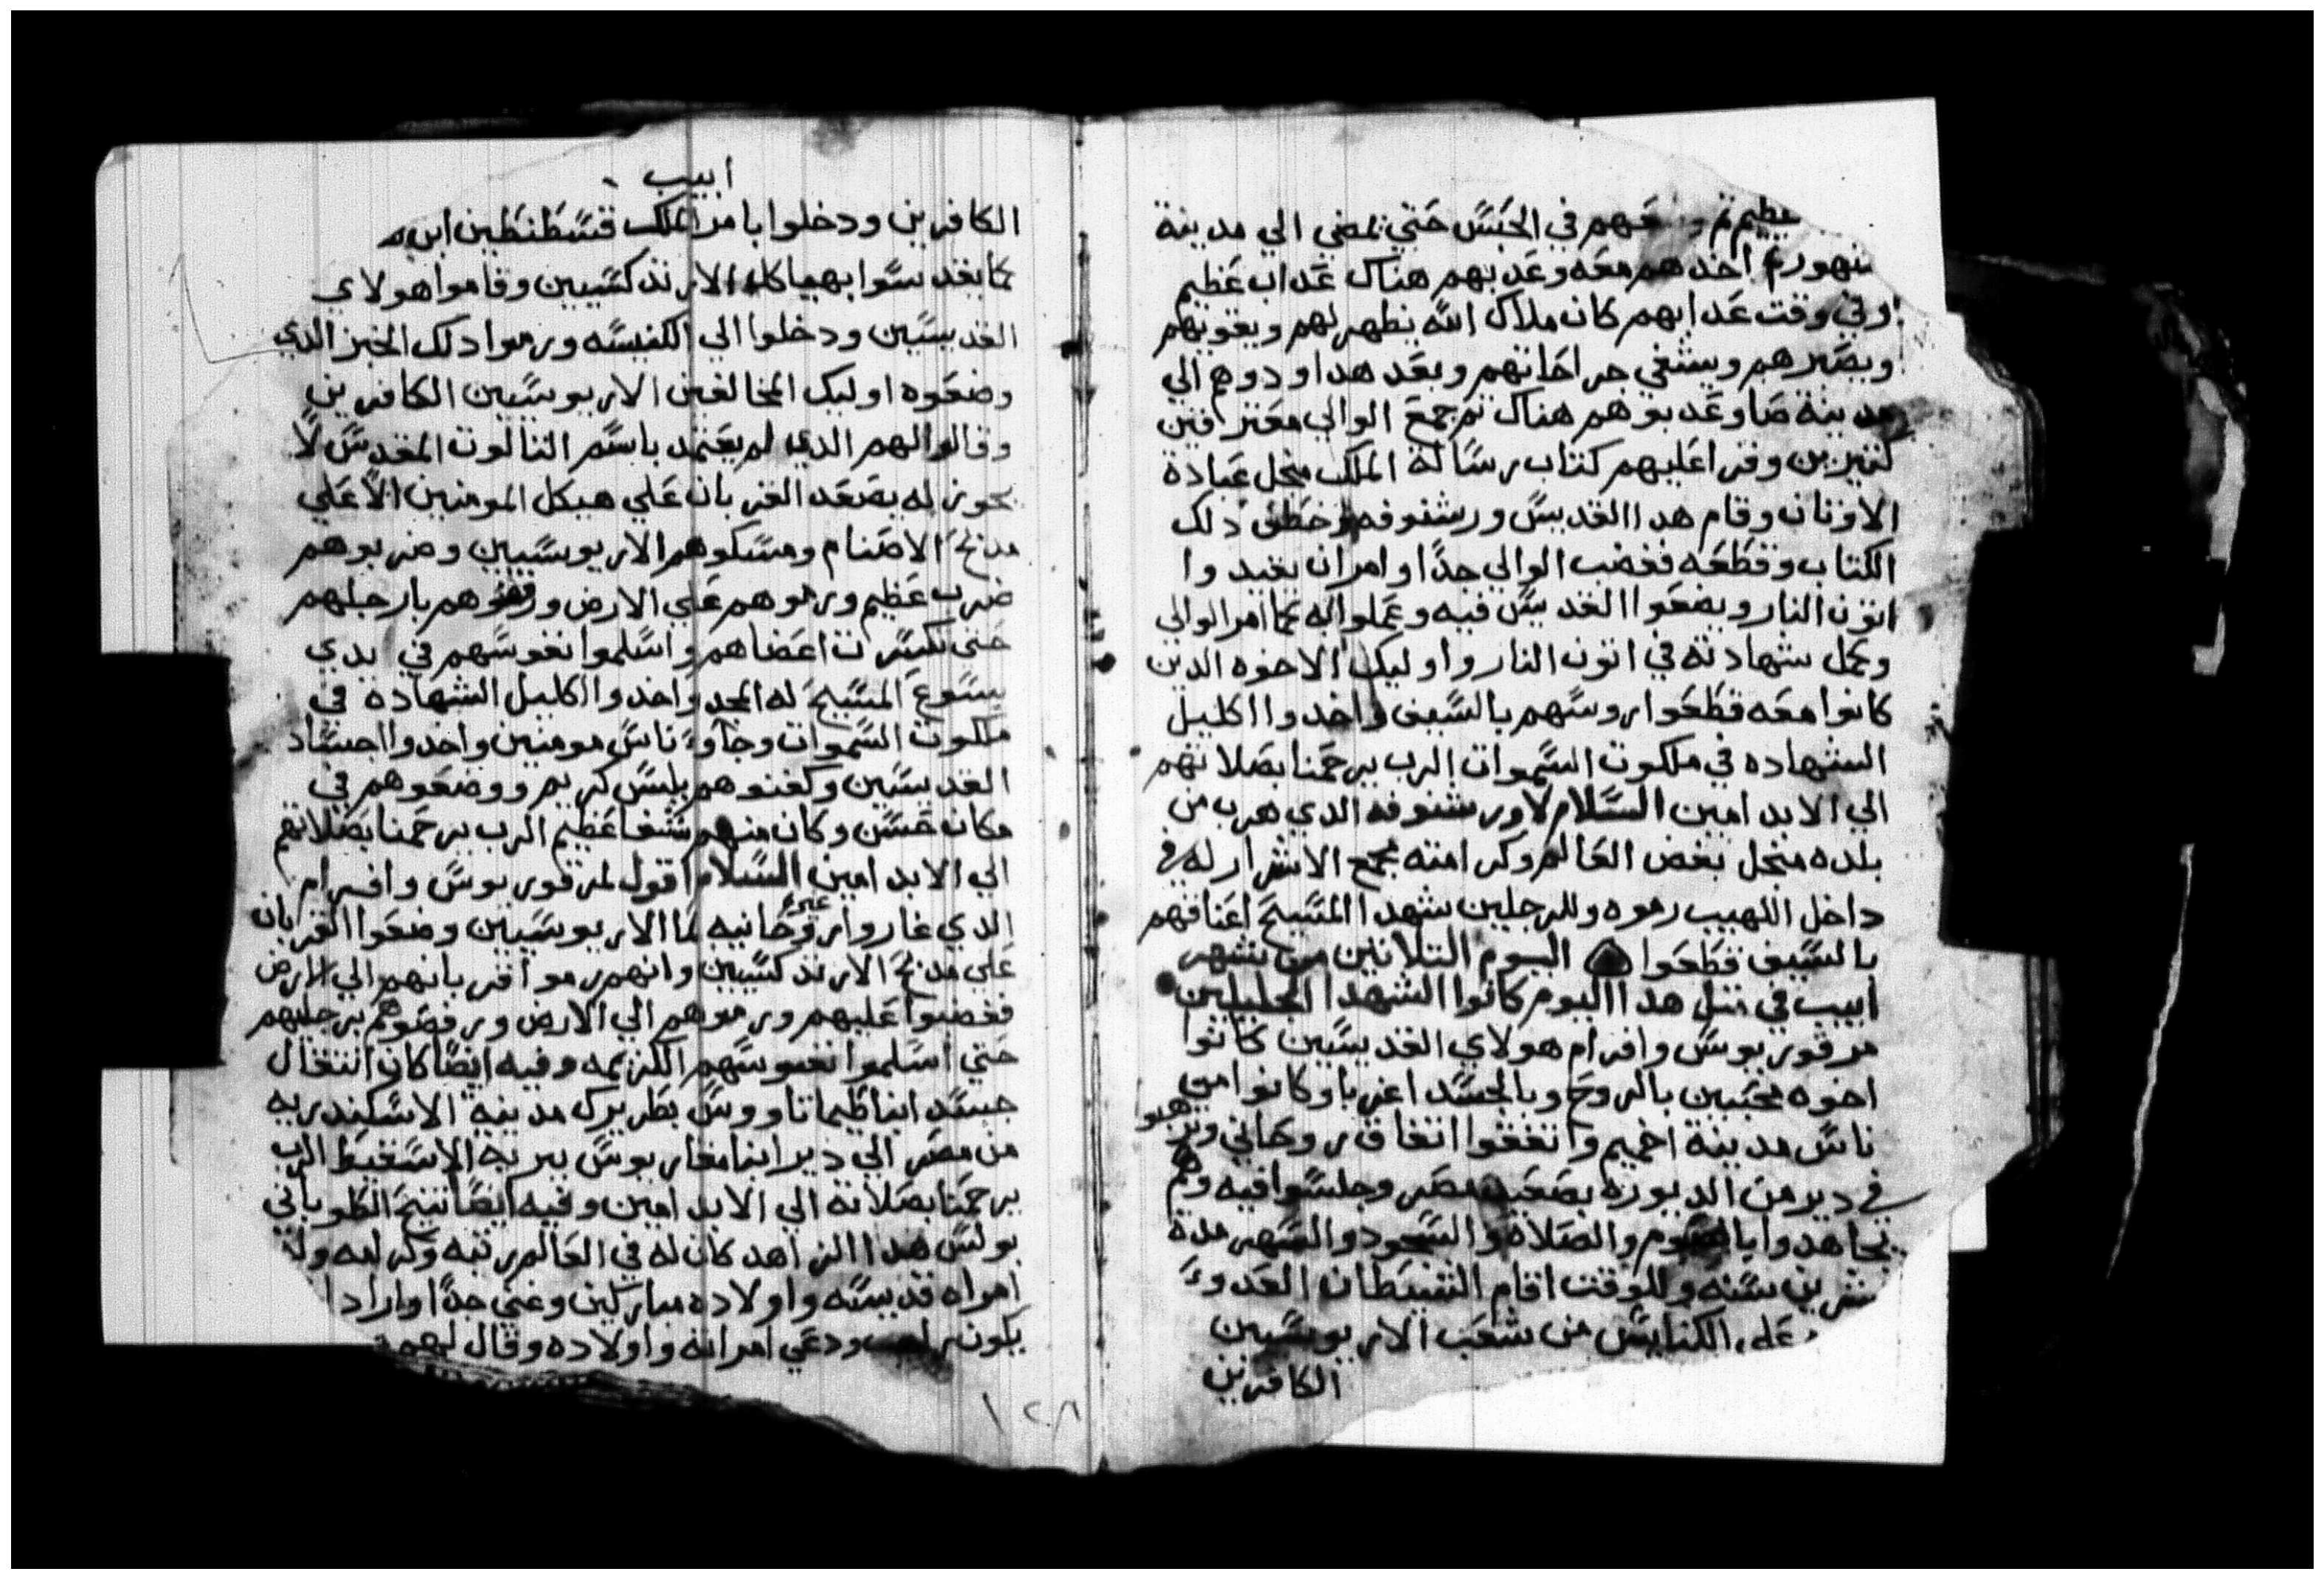 عظيم فهم في الحبس حتي تمضي الي مدينة
سنهور ثم اخدهم معه وعدبهم هناك عداب عظيم
وفي وقت عدابهم كان ملاك الله يظهر لهم ويقويهم
ويصبرهم ويشفي جراحاتهم وبعد هدا ودوهم الي
مدينة صا وعدبوهم هناك ثم جمع الوالي معترفين
كتيرين وقرا عليهم كتاب رسالة الملك منجل عبادة
الاوتان وقام هدا القديس ورشنوفه وخطف دلك
الكتاب وقطعه فغضب الوالي جدا وامر ان يقيدوا
اتون النار ويضعوا القديس فيه وعملوا له كما امر الوالي
وكمل شهادته في اتون النار واوليك الاخوه الدين
كانوا معه قطعوا روسهم بالسيف واخدوا اكليل
الشهاده في ملكوت السموات الرب يرحمنا بصلاتهم
الي الابد امين السلام لاورشنوفه الدي هرب من
بلده منجل بغض العالم وكرامته مجمع الاشرار له في
داخل اللهيب رموه وللرجلين شهدا المسيح اعناقهم
بالسيف قطعوا اليوم التلاتين من شهر
ابيب في متل هدا اليوم كانوا الشهدا الجليلين
مرقوريوس وافرام هولاي القديسين كانوا
اخوه محبين بالروح وبالجسد اغربا وكانوا من
ناس مدينة اخميم واتفقوا اتفاق روحاني وترهبو
في دير من الديورة بصعيد مصر وجلسوا فيه وهم
يجاهدوا بالصوم والصلاه والسجود والسهر مدة
عشرين سنه وللوقت اقام الشيطان العدو
علي الكنايس من شعب الاريوسيين
الكافرين
ابيب
الكافرين ودخلوا بامر الملك قسطنطين ابن
كما يقدسوا بهياكل الارتدكسيين وقاموا هولاي
القديسين ودخلوا الي الكنيسه ورموا دلك الخبز الدي
وضعوه اوليك المخالفين الاريوسيين الكافرين
وقالوا لهم الدي لم يعتمد باسم التالوت المقدس لا
يجوز له يصعد القربان علي هيكل المومنين الا علي
مدبح الاصنام ومسكوهم الاريوسيين وضربوهم
ضرب عظيم ورموهم علي الارض ورفصوهم بارجلهم
حتي تكسرت اعضاهم واسلموا نفوسهم في يدي
يسوع المسيح له المجد واخدوا اكليل الشهاده في
ملكوت السموات وجاوا ناس مومنين واخدوا اجساد
القديسين وكفنوهم بلبس كريم ووضعوهم في
مكان حسن وكان منهم شفا عظيم الرب يرحمنا بصلاتهم
الي الابد امين السلام اقول لمرقوريوس وافرام
الدي غاروا غيره روحانيه لما الاريوسيين وضعوا القربان
علي مدبح الارتدكسيين وانهم رموا قربانهم الي الارض
فغضبوا عليهم ورموهم الي الارض ورفصوهم برجليهم
حتي اسلموا نفوسهم الكريمه وفيه ايضا كان انتقال
جسد ابنا طيماتاووس بطريرك مدينة الاسكندريه
من مصر الي دير ابنا مقاريوس ببرية الاسقيط الرب
يرحمنا بصلاته الي الابد امين وفيه ايضا تنيح الطوباني
بولس هدا الزاهد كان له في العالم رتبه وكراسه وله
امراه قديسه واولاده مباركين وغني جدا واراد ا
يكون راهب ودعي امراته واولاده وقال لهم
١٢٨